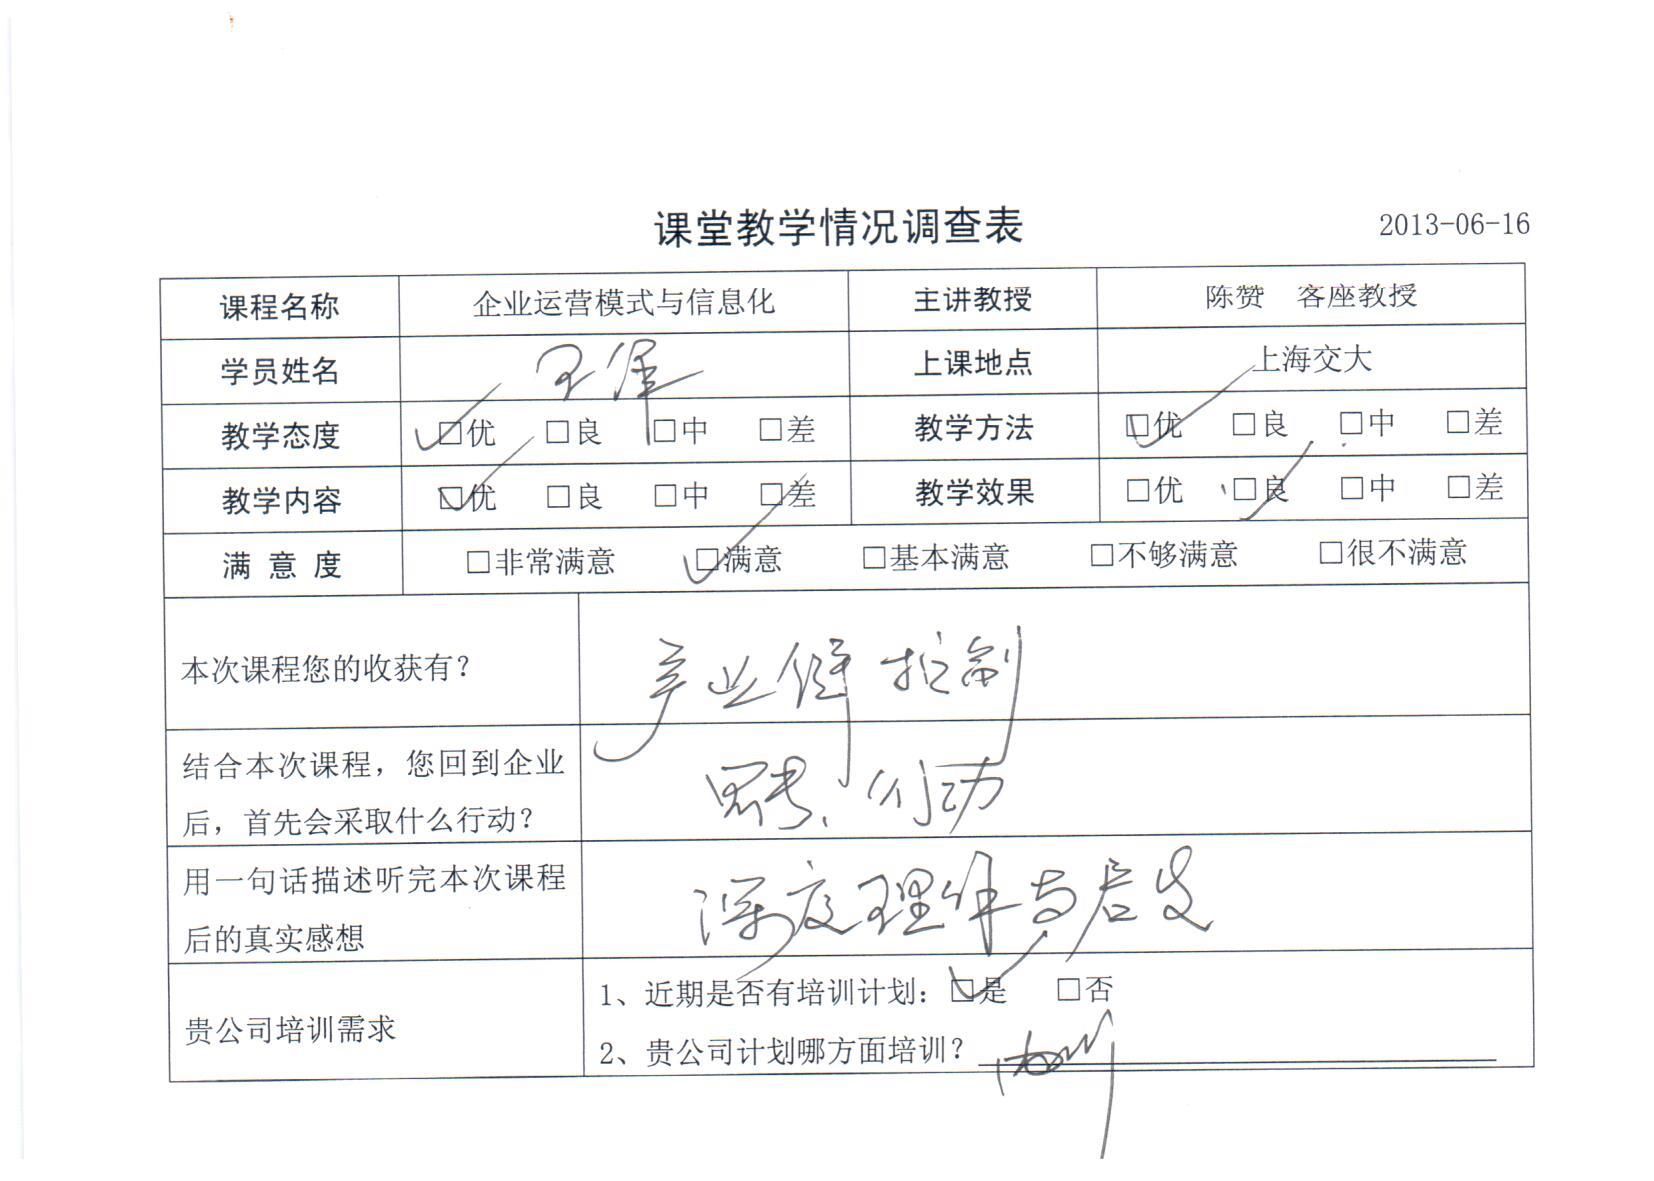 课堂教学情况调查表 2013-06-16
课程名称 企业运营模式与信息化 主讲教授 陈赞 客座教授
学员姓名 王 上课地点 上海交大
教学态度 ☑优 □良 □中 □差 教学方法 ☑优 □良 □中 □差
教学内容 ☑优 □良 □中 □差 教学效果 □优 ☑良 □中 □差
满 意 度 □非常满意 ☑满意 □基本满意 □不够满意 □很不满意
本次课程您的收获有？ 产业链 控制
结合本次课程，您回到企业
后，首先会采取什么行动？ 思考、行动
用一句话描述听完本次课程
后的真实感想 深度理解与启发
贵公司培训需求
1、近期是否有培训计划：☑是 □否
2、贵公司计划哪方面培训？